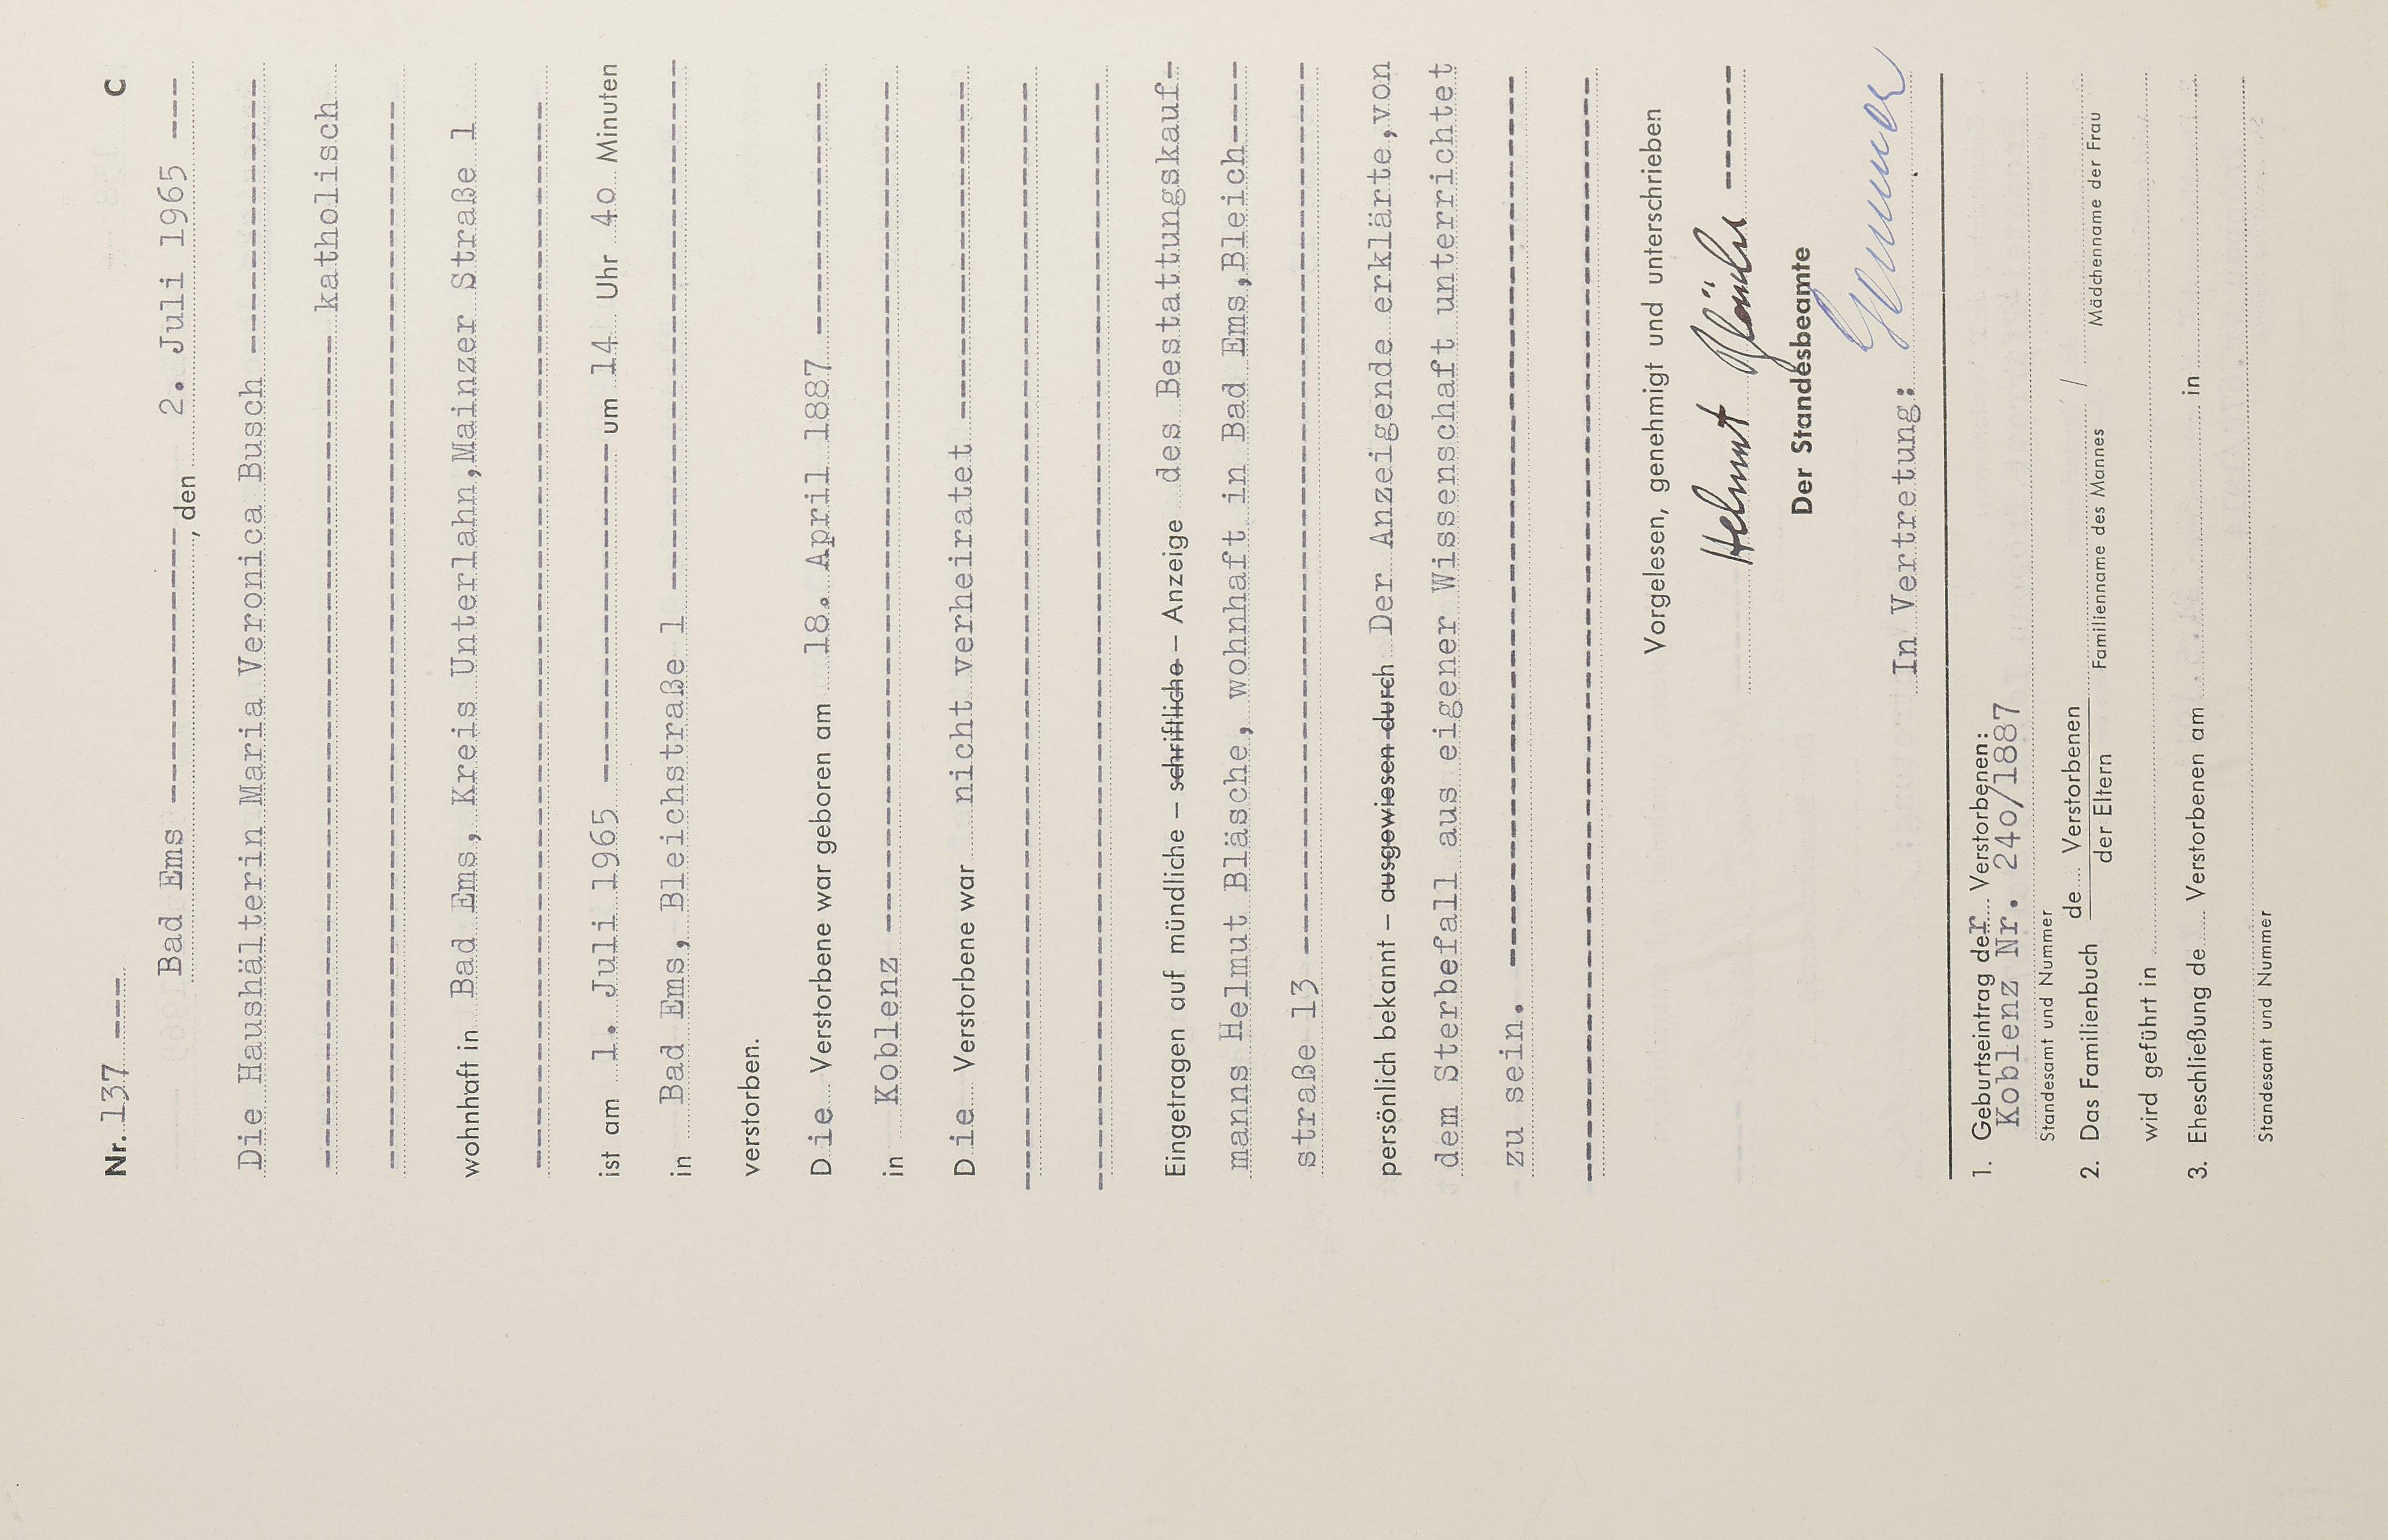 Nr. 137 ---
C
Bad Ems ----------------, den 2. Juli 1965 ---
Die Haushälterin Maria Veronica Busch ----------------
---------------- katholisch
----------------
wohnhaft in Bad Ems, Kreis Unterlahn,Mainzer Straße 1
----------------
ist am 1. Juli 1965 ---------------- um 14 Uhr 40 Minuten
in Bad Ems, Bleichstraße 1 ----------------
verstorben.
Die Verstorbene war geboren am 18. April 1887 ----------------
in Koblenz ----------------
Die Verstorbene war nicht verheiratet ----------------
----------------
----------------
Eingetragen auf mündliche – schriftliche – Anzeige des Bestattungskauf-
manns Helmut Bläsche, wohnhaft in Bad Ems,Bleich----
straße 13 ----------------
persönlich bekannt – ausgewiesen durch Der Anzeigende erklärte,von
dem Sterbefall aus eigener Wissenschaft unterrichtet
zu sein. ----------------
----------------
Vorgelesen, genehmigt und unterschrieben
Helmut Bläsche ------
Der Standesbeamte
In Vertretung:
1. Geburtseintrag der Verstorbenen:
Koblenz Nr. 240/1887
Standesamt und Nummer
2. Das Familienbuch de Verstorbenen /
der Eltern Familienname des Mannes Mädchenname der Frau
wird geführt in
3. Eheschließung de Verstorbenen am in
Standesamt und Nummer